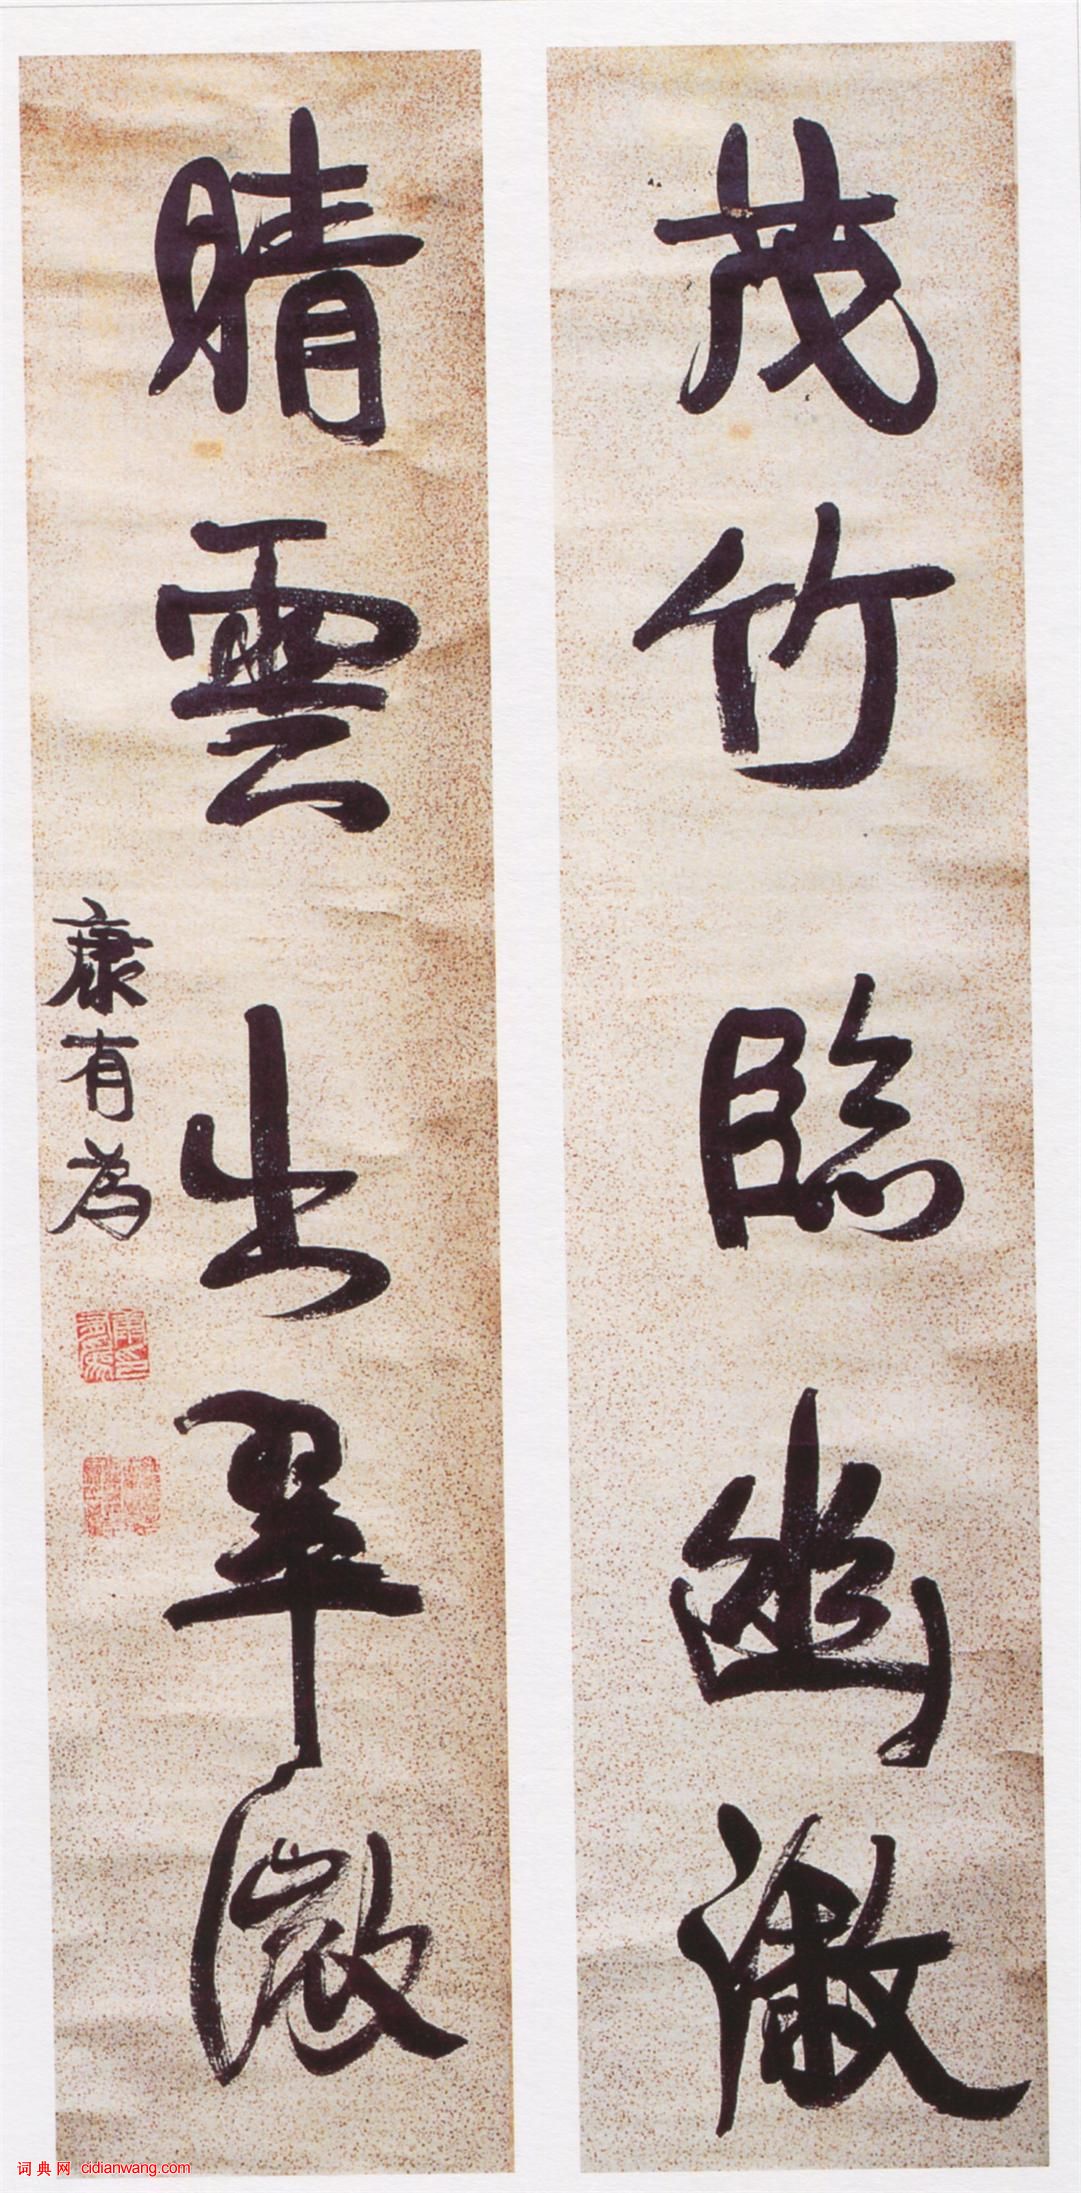 茂竹臨幽漵
晴雲出翠微
康有為
词典网 cidianwang.com